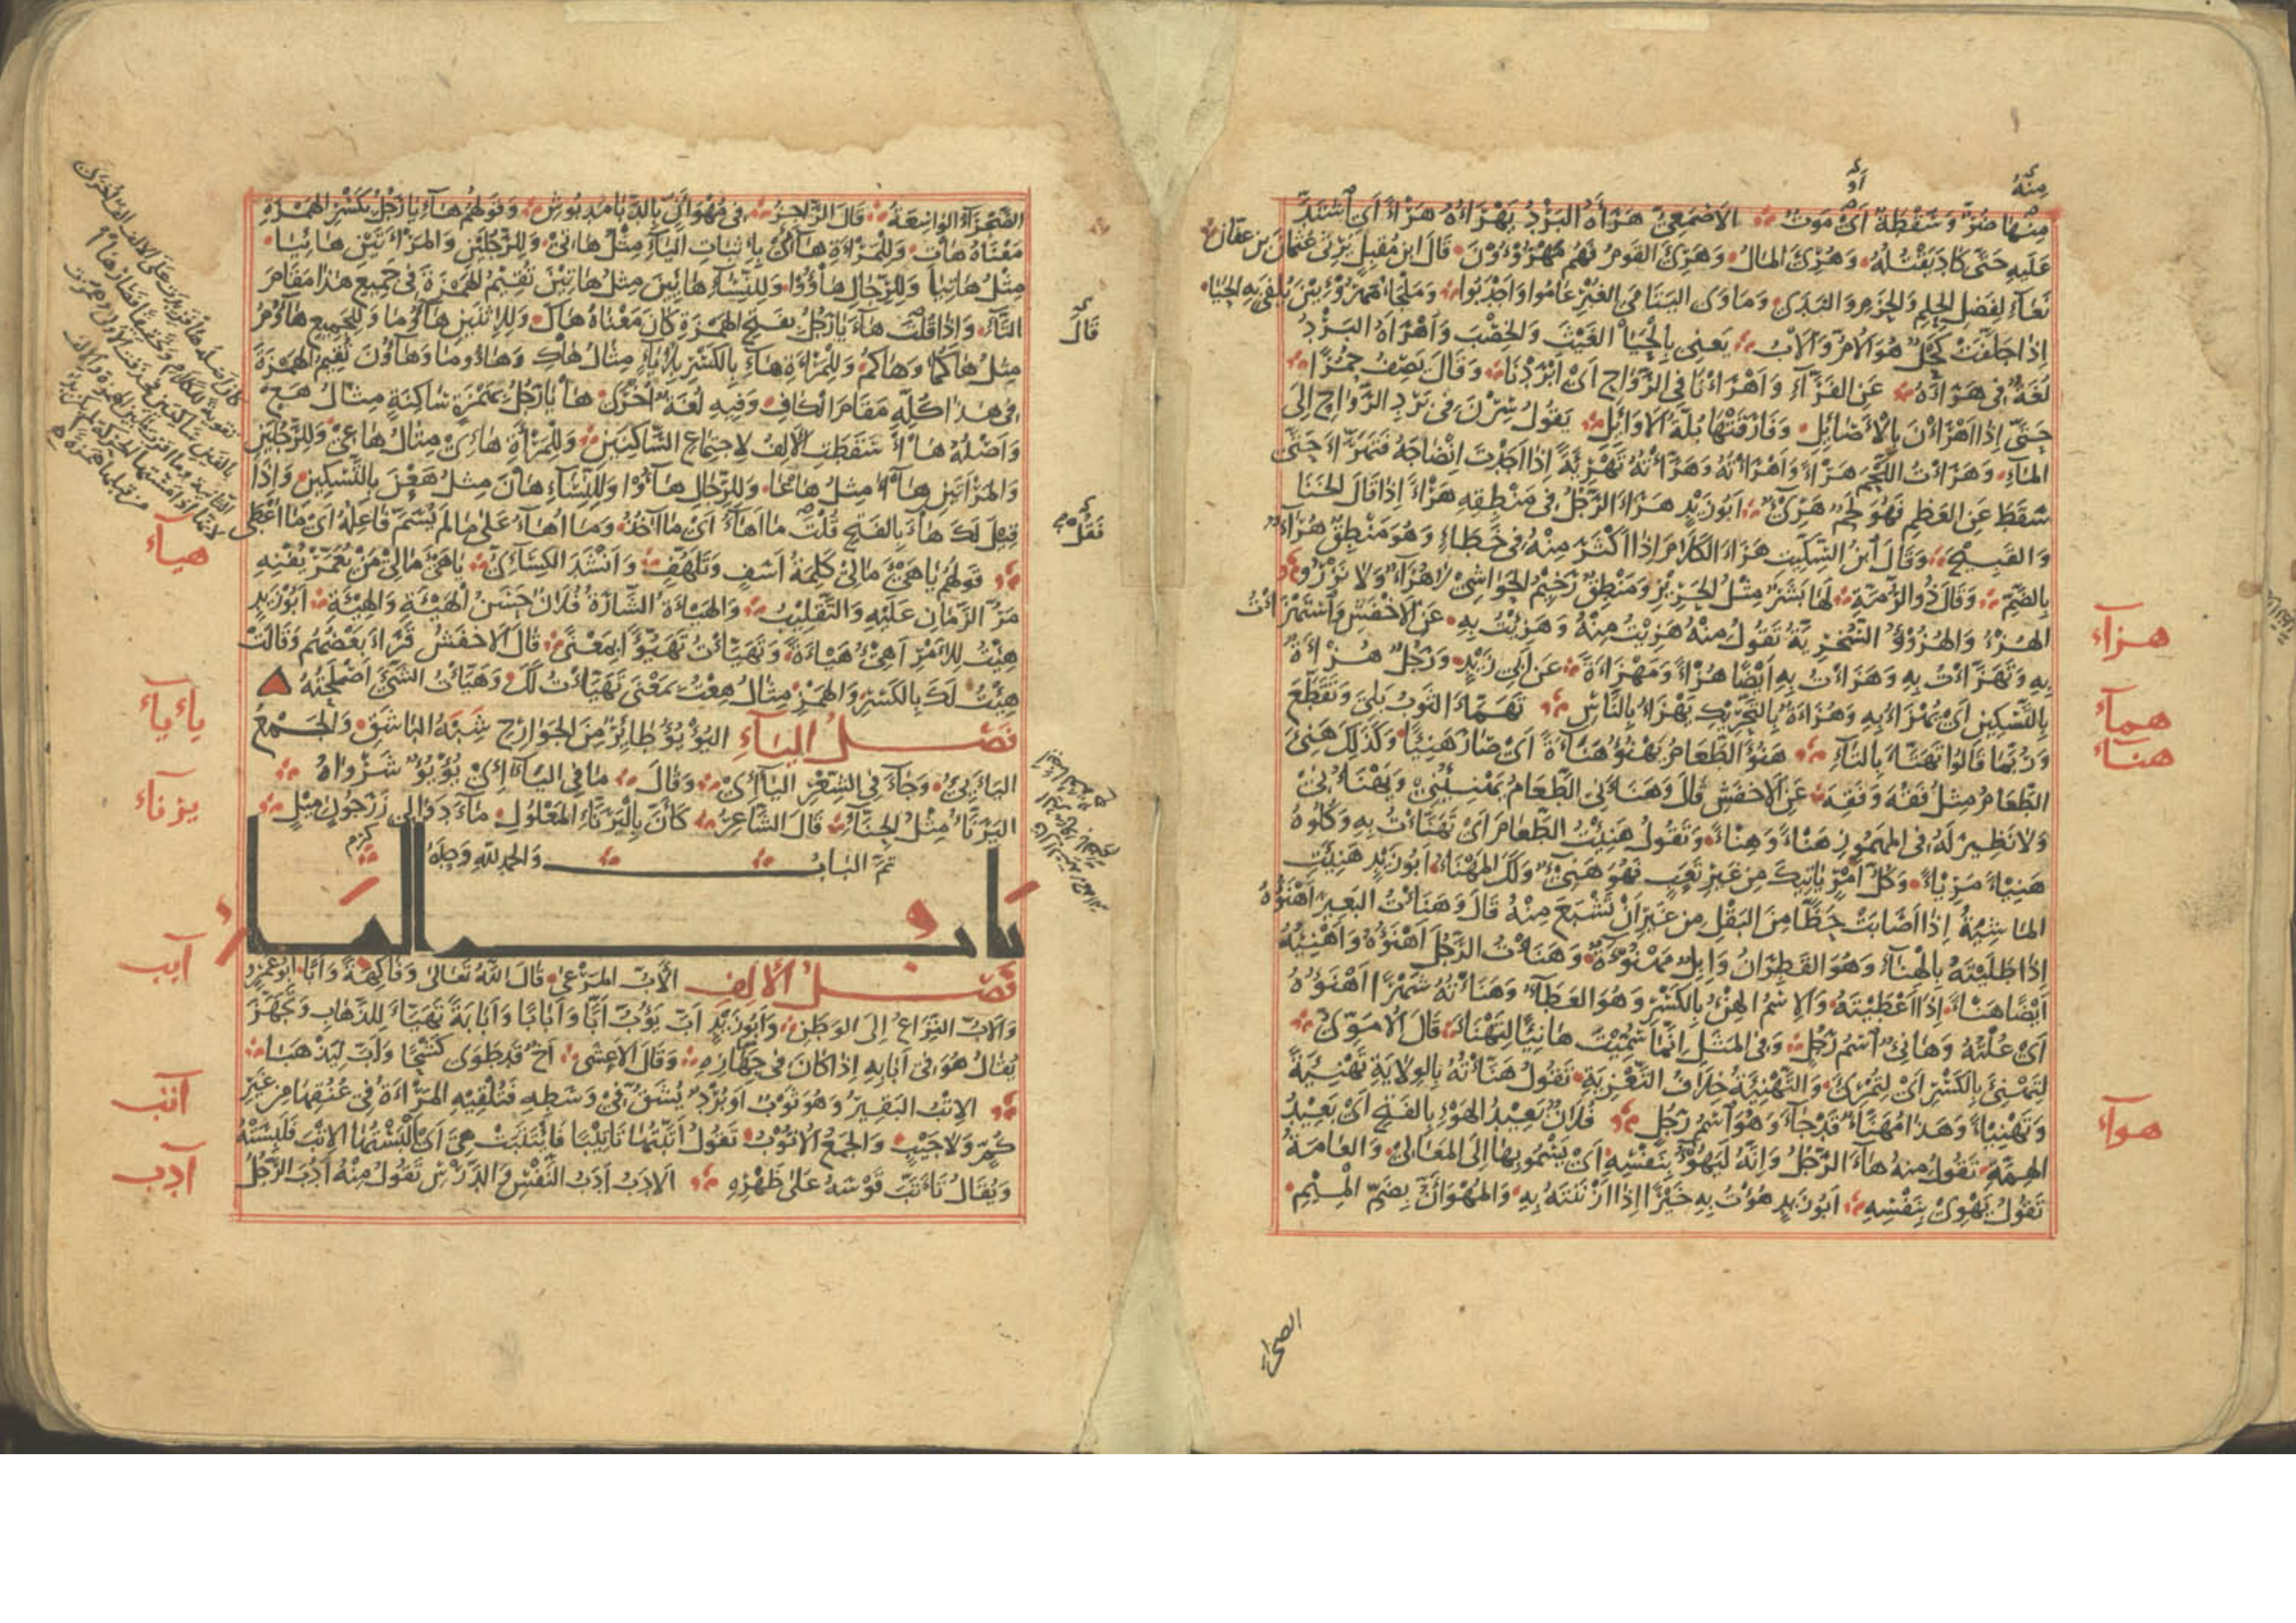 منه
أو
منها ضر وسقطة أي موت الأصمعي هرأه البرد يهرأه هرءا أي اشتد
عليه حتى كاد يقتله وهرئ المال وهرئ القوم فهم مهروؤون قال ابن مقبل يرثي عثمان بن عفان
نعاء لفضل الحلم والحزم والندى ومأوى اليتامى الغبر عاموا وأجدبوا وملجأ مهروئين يلفى به الحيا
إذا جلفت كحل هو الأم والأب يعني بالحيا الغيث والخصب وأهرأه البرد
لغة في هرأه عن الفراء وأهرأنا في الرواح أي أبردنا وقال يصف حمرا
حتى إذا أهرأن بالأصائل وفارقتها بلة الأوائل يقول سرن في برد الرواح إلى
الماء وهرأت اللحم هرءا وأهرأته وهرأته تهرئة إذا أجدت إنضاجه فتهرأ حتى
سقط عن العظم فهو لحم هرئ أبو زيد هرأ الرجل في منطقه هرءا إذا قال الخنا
والقبيح وقال ابن السكيت هرأ الكلام إذا أكثر منه في خطاء وهو منطق هراء
بالضم وقال ذو الرمة لها بشر مثل الحرير ومنطق رخيم الحواشي لا هراء ولا نزر
الهزء والهزؤ السخرية تقول منه هزئت منه وهزئت به عن الأخفش واستهزأت
به وتهزأت به وهزأت به أيضا هزءا ومهزأة عن أبي زيد ورجل هزأة
بالتسكين أي يهزأ به وهزأة بالتحريك يهزأ بالناس تهمأ الثوب بلي وتقطع
وربما قالوا تهتأ بالتاء هنؤ الطعام يهنؤ هناءة أي صار هنيئا وكذلك هنئ
الطعام مثل فقه وفقه عن الأخفش قال وهنأني الطعام يهنئني ويهنأني
ولا نظير له في المهموز هنأ وهناء وتقول هنئت الطعام أي تهنأت به وكلوه
هنيئا مريئا وكل أمر يأتيك من غير تعب فهو هنيء ولك المهنأ أبو زيد هنئت
الماشية إذا أصابت حظا من البقل من غير أن تشبع منه قال وهنأت البعير أهنؤه
إذا طليته بالهناء وهو القطران وإبل مهنوءة وهنأت الرجل أهنؤه وأهنئه
أيضا هنأ إذا أعطيته والاسم الهنء بالكسر وهو العطاء وهنأته شهرا أهنؤه
أي علته وهانئ اسم رجل وفي المثل إنما سميت هانئا لتهنأ قال الأموي
لتهنئ بالكسر أي لتمرئ والتهنئة خلاف التعزية تقول هنأته بالولاية تهنئة
وتهنيئا وهذا مهنأ قد جاء وهو اسم رجل فلان بعيد الهوء بالفتح أي بعيد
الهمة تقول منه هاء الرجل وإنه ليهوء بنفسه أي يسمو بها إلى المعالي والعامة
تقول يهوي بنفسه أبو زيد هؤت به خيرا إذا أزننته به والمهوأن بضم الميم
هزاء
هماء
هناء
هواء
الصحراء
الصحراء الواسعة قال الراجز في مهوأن بالدبا مدبوش وقولهم هاء يا رجل بكسر الهمزة
معناه هات وللمرأة هائي بإثبات الياء مثل هاتي وللرجلين والمرأتين هائيا
مثل هاتيا وللرجال هاؤوا وللنساء هائين مثل هاتين تقيم الهمزة في جميع هذا مقام
التاء وإذا قلت هاء يا رجل بفتح الهمزة كان معناه هاك وللاثنين هاؤما وللجميع هاؤم
مثل هاكما وهاكم وللمرأة هاء بالكسر بلا ياء مثال هاك وهاؤما وهاؤن تقيم الهمزة
في هذا كله مقام الكاف وفيه لغة أخرى هأ يا رجل بهمزة ساكنة مثال هع
وأصله هاأ سقطت الألف لاجتماع الساكنين وللمرأة هائي مثال هاعي وللرجلين
والمرأتين هاآ مثل هاعا وللرجال هاؤوا وللنساء هأن مثل هعن بالتسكين وإذا
قيل لك هاء بالفتح قلت ما أهاء أي ما آخذ وما أهاء على ما لم يسم فاعله أي ما أعطى
قولهم يا هيء مالي كلمة أسف وتلهف وأنشد الكسائي يا هيء مالي من يعمر يفنه
مر الزمان عليه والتقليب والهيأة الشارة فلان حسن الهيئة والهيئة أبو زيد
هئت للأمر أهيء هيأة وتهيأت تهيؤا بمعنى قال الأخفش قرأ بعضهم وقالت
هئت لك بالكسر والهمز مثال هعت بمعنى تهيأت لك وهيأت الشيء أصلحته
فصل الياء اليؤيؤ طائر من الجوارح شبه الباشق والجمع
اليآيئ وجاء في الشعر اليآئي وقال ما في اليآئي يؤيؤ شرواه
اليرنأ مثل الحناء قال الشاعر كأن باليرنأ المعلول ماء دوالي زرجون ميل
تم الباب والحمد لله وحده
باب الباء
فصل الألف الأب المرعى قال الله تعالى وفاكهة وأبا أبو عمرو
والأب النزاع إلى الوطن وأبو زيد أب يؤب أبا وأبابا وأبابة تهيأ للذهاب وتجهز
يقال هو في أبابه إذا كان في جهازه وقال الأعشى أخ قد طوى كشحا وأب ليذهبا
الإتب البقير وهو ثوب أو برد يشق في وسطه فتلقيه المرأة في عنقها من غير
كم ولا جيب والجمع الأتوب تقول أتبتها تأتيبا فائتتبت هي أي ألبستها الإتب فلبسته
ويقال تأتب قوسه على ظهره الأدب أدب النفس والدرس تقول منه أدب الرجل
قال
هياء
ياء ياء
يرناء
آبب
آتب
آدب